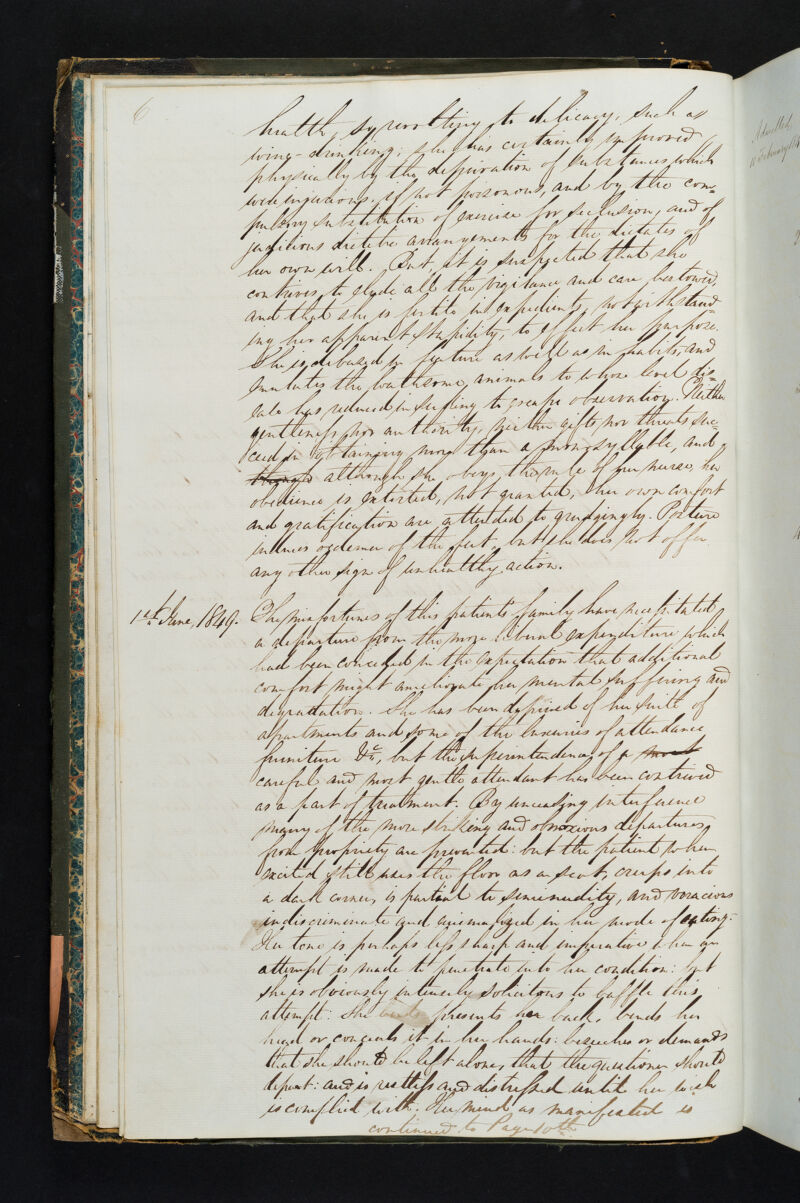 6
health, so revolting to delicacy, such as
wine-drinking; she has certainly improved
physically by the deprivation of substances which
were injurious, if not poisonous, and by the com-
pulsory substitution of exercise for seclusion, and of
judicious dietetic arrangements for the dictates of
her own will. But, it is suspected that she
contrives to elude all the vigilance and care bestowed,
and that she is fertile in expedients, notwithstand-
ing her apparent stupidity, to effect her purpose.
She is debased in gesture as well as in habits, and
imitates the loathsome animals to whose level dis-
ease has reduced in seeking to escape observation. Neither
gentleness nor authority, neither gifts nor threats suc-
ceed in obtaining more than a monosyllable, and
though although she obeys the rule of her nurse, her
obedience is extorted, not granted; her own comfort
and gratification are attended to grudgingly. Posture
induces oedema of the feet, but she does not offer
any other sign of unhealthy action.
1st June, 1849. The misfortunes of this patient's family have necessitated
a departure from the more liberal expenditure which
had been conceded in the expectation that additional
comfort might ameliorate her mental suffering and
degradation. She has been deprived of her suite of
apartments and some of the luxuries of attendance
furniture &c, but the superintendence of a most
careful and most gentle attendant has been contrived
as a part of treatment. By unceasing interference
many of the more striking and obnoxious departures
from propriety are prevented: but the patient when
excited still uses the floor as a seat, creeps into
a dark corner, is partial to seminudity, and voracious
indiscriminate and animalized in her mode of eating.
Her tone is perhaps less sharp and imperative when an
attempt is made to penetrate into her condition: but
she is obviously intensely solicitous to baffle this
attempt: she presents her back, bends her
head or conceals it in her hands: beseeches or demands
that she should be left alone, that the questioner should
depart: and is restless and distressed until her wish
is complied with. Her mind as manifested is
continued to Page 10th
Admitted,
February